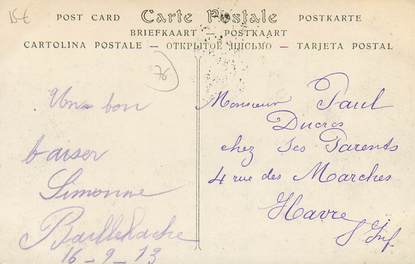 15€
POST CARD Carte Postale POSTKARTE
BRIEFKAART — POSTKAART
CARTOLINA POSTALE — ОТКРЫТОЕ ПИСЬМО — TARJETA POSTAL
76
Un bon
baiser
Simonne
Baillehache
16-9-13
Monsieur Paul
Ducros
chez Ses Parents
4 rue des Marches
Havre
S Inf.